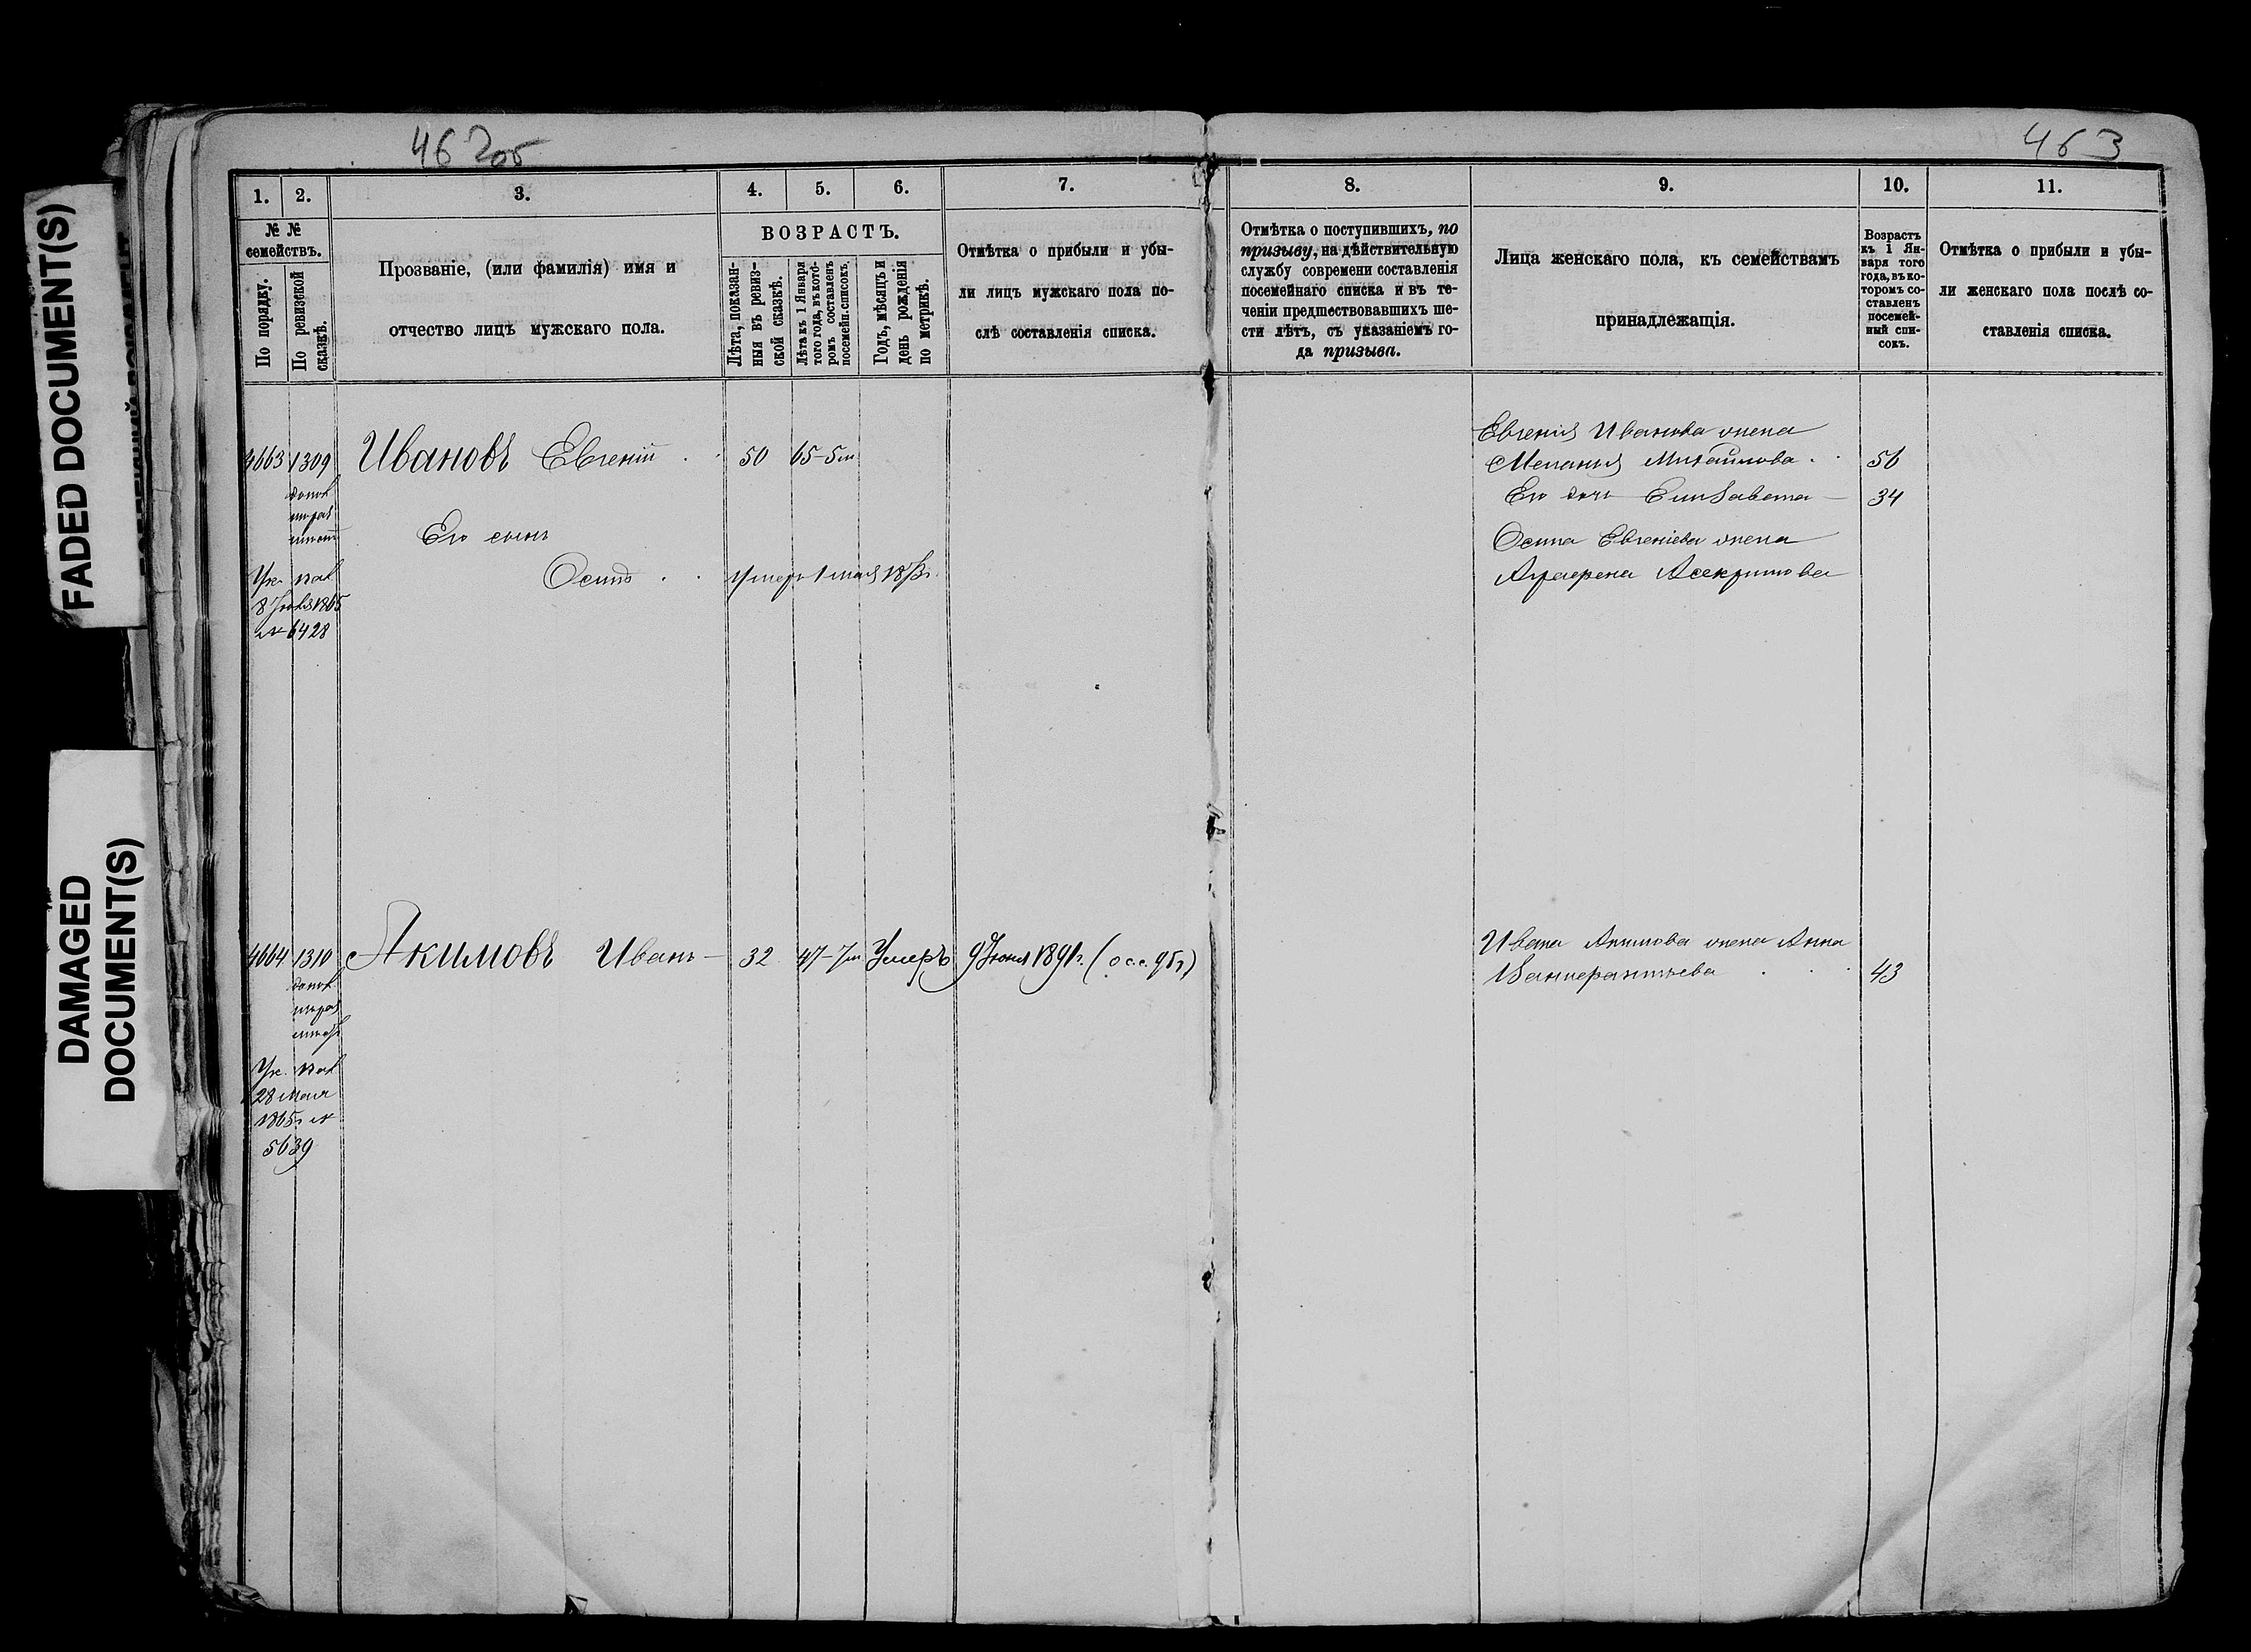 462об
463
FADED DOCUMENT(S)
DAMAGED
DOCUMENT(S)
1.
2.
3.
4.
5.
6.
7.
8.
9.
10.
11.
№ №
семействъ.
По порядку.
По ревизской
сказкѣ.
Прозваніе, (или фамилія) имя и
отчество лицъ мужскаго пола.
ВОЗРАСТЪ.
Лѣта, показан-
ныя въ ревиз-
ской сказкѣ.
Лѣта къ 1 Января
того года, въ кото-
ромъ составленъ
посемейн. списокъ.
Годъ, мѣсяцъ и
день рожденія
по метрикѣ.
Отмѣтка о прибыли и убы-
ли лицъ мужскаго пола по-
слѣ составленія списка.
Отмѣтка о поступившихъ, по
призыву, на дѣйствительную
службу современи составленія
посемейнаго списка и въ те-
ченіи предшествовавшихъ ше-
сти лѣтъ, съ указаніемъ го-
да призыва.
Лица женскаго пола, къ семействамъ
принадлежащія.
Возрастъ
къ 1 Ян-
варя того
года, въ ко-
торомъ со-
ставленъ
посемей-
ный спи-
сокъ.
Отмѣтка о прибыли и убы-
ли женскаго пола послѣ со-
ставленія списка.
4663 1309 Ивановъ Евгеній 50 65-5м
Его сынъ
Осипъ умеръ 1 мая
Ук.
8 1865
№ 6428
Евгенія Иванова жена
Меланія Михайлова 56
Его дочь Елизавета 34
Осипа Евгеніева жена
Аграфена
4664 1310 Якимовъ Иванъ 32 47-7м Умеръ 9 Іюня 1891г.
Ук.
28 мая
1865г №
5639
Ивана Акимова жена Анна
43